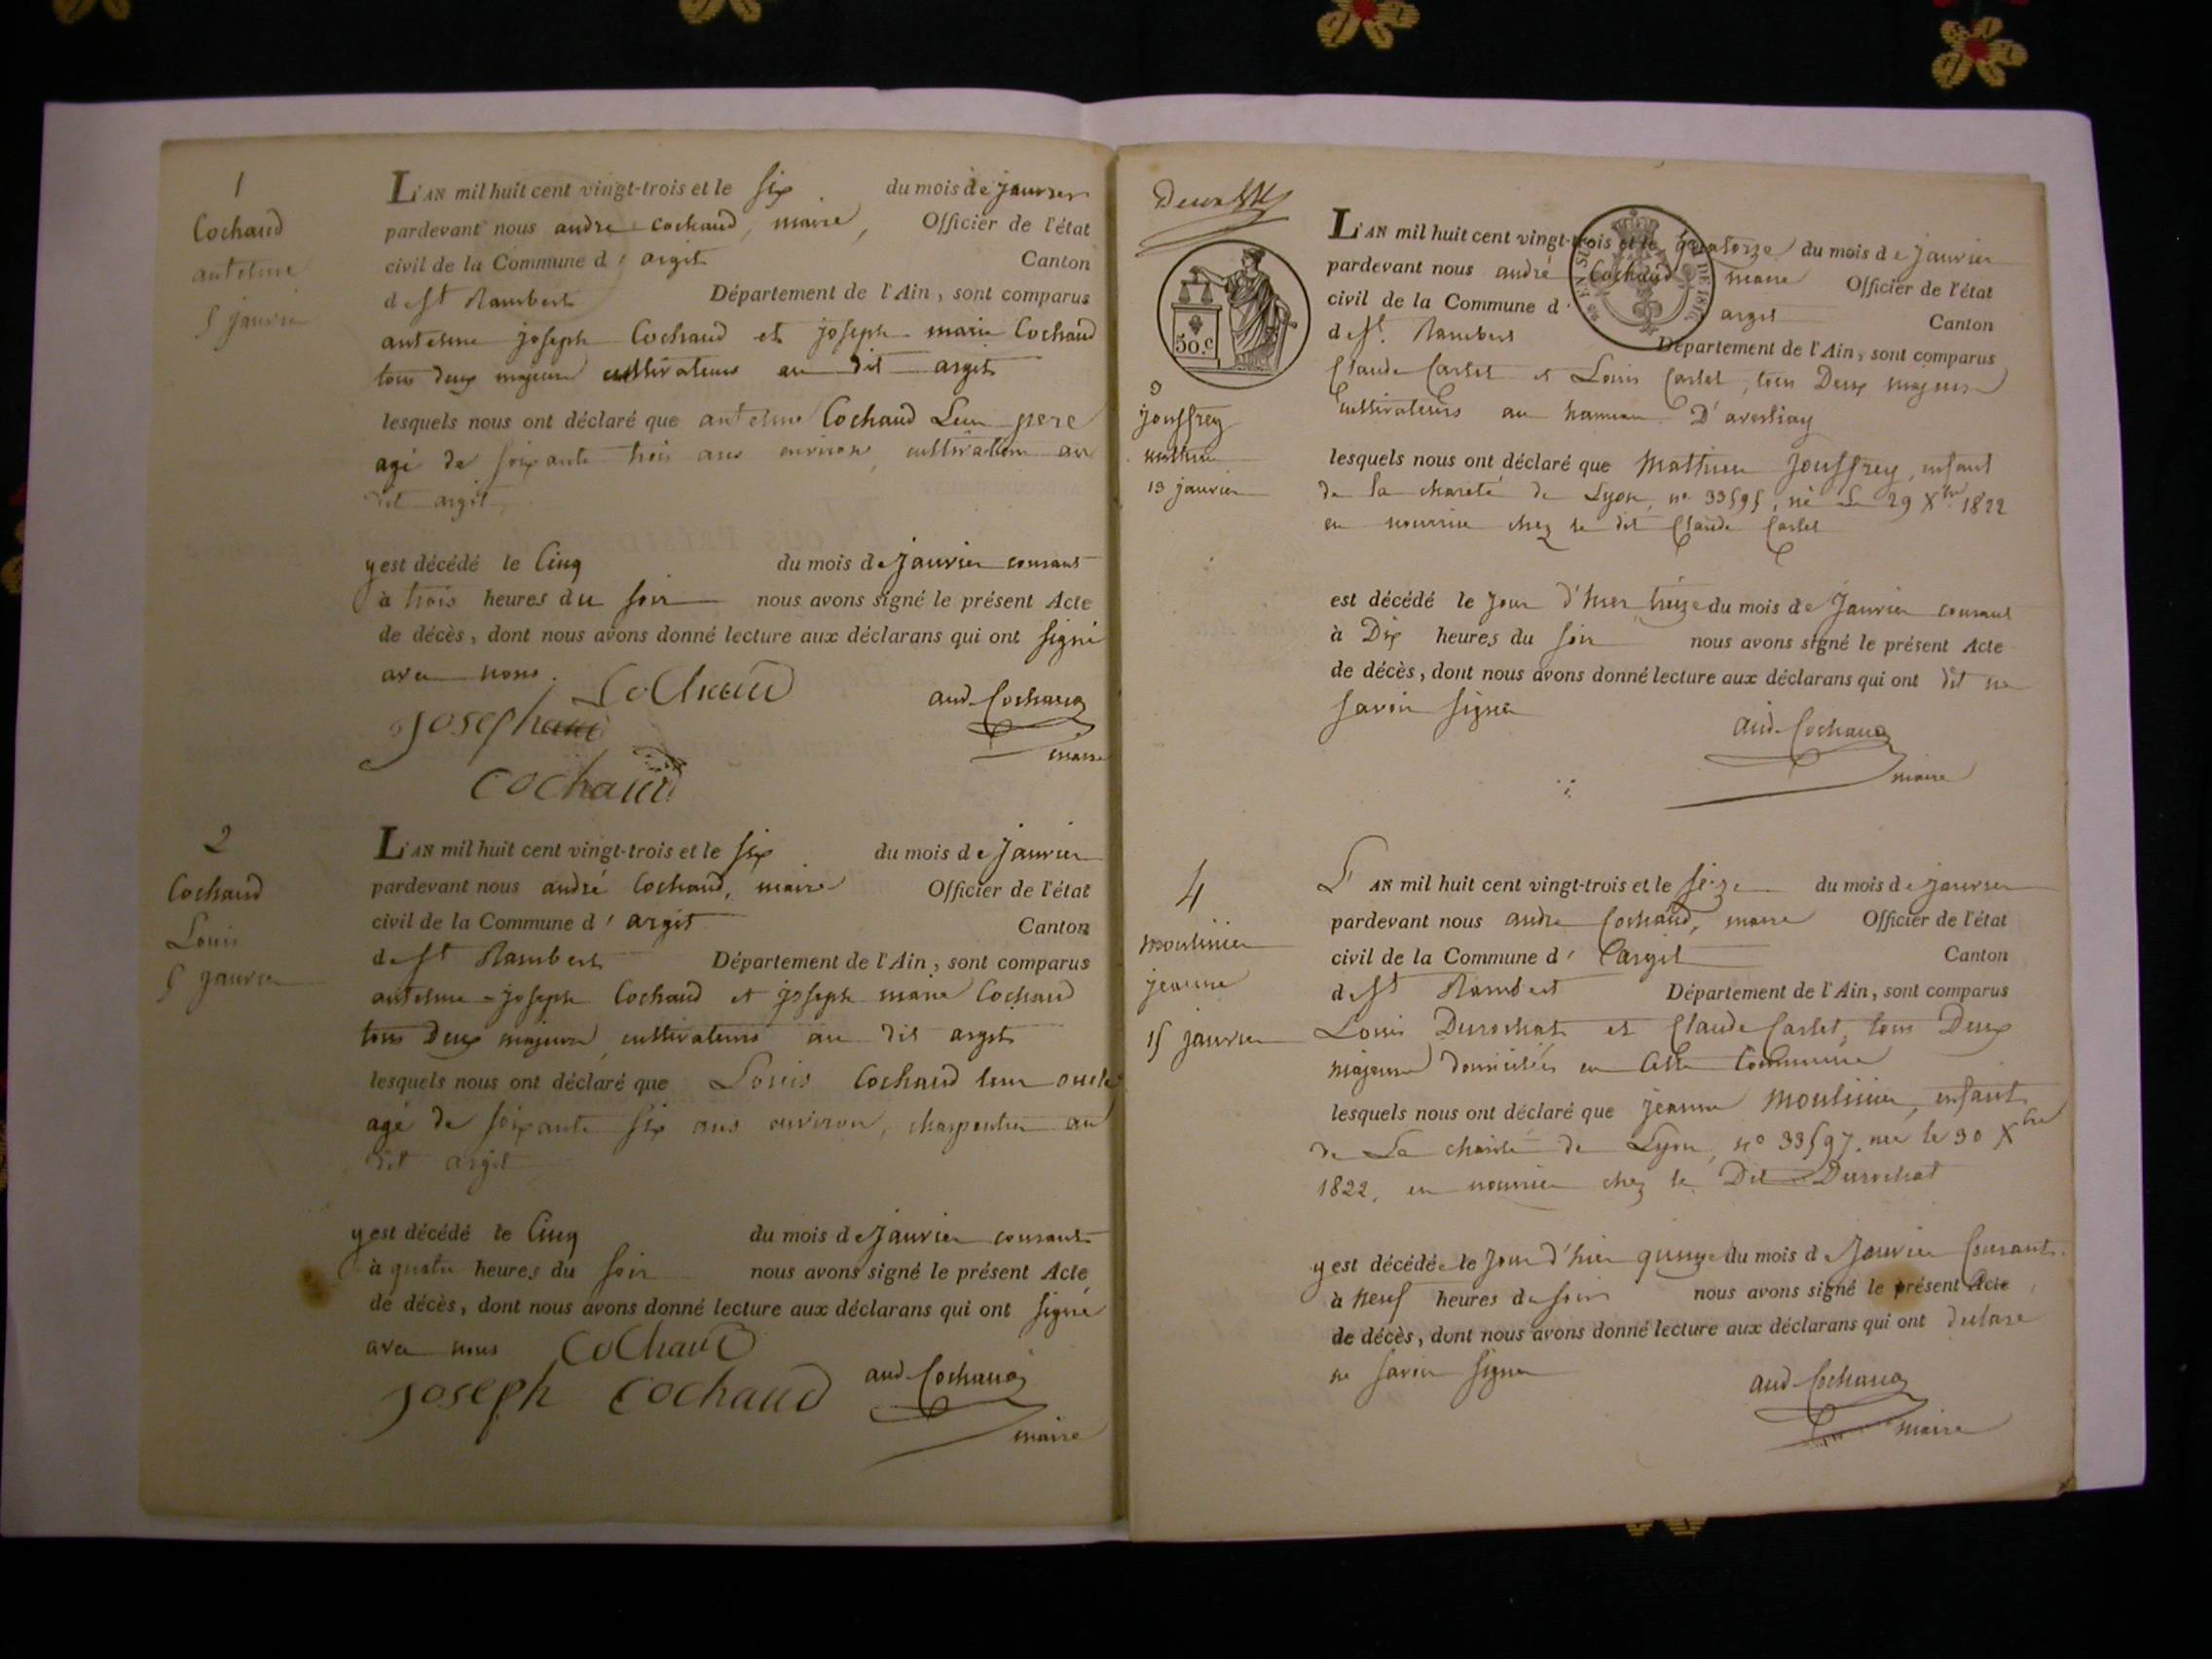 1
Cochaud
antelme
5 janvier
L'AN mil huit cent vingt-trois et le six du mois de janvier
pardevant nous andré cochaud, maire, Officier de l'état
civil de la Commune d'argit Canton
de St Rambert Département de l'Ain, sont comparus
antelme joseph Cochaud et joseph marie Cochaud
tous deux majeurs cultivateurs au dit argit
lesquels nous ont déclaré que antelme Cochaud Leur pere
agé de soixante trois ans environ, cultivateur au
dit argit
y est décédé le Cinq du mois de janvier courant
à trois heures du soir nous avons signé le présent Acte
de décès, dont nous avons donné lecture aux déclarans qui ont signé
avec nous.
Cochaud
Joseph
cochaud
and Cochaud
maire
2
Cochaud
Louis
5 janvier
L'AN mil huit cent vingt-trois et le six du mois de janvier
pardevant nous andré Cochaud, maire Officier de l'état
civil de la Commune d'argit Canton
de St Rambert Département de l'Ain, sont comparus
antelme-joseph Cochaud et joseph marie Cochaud
tous deux majeurs, cultivateurs au dit argit
lesquels nous ont déclaré que Louis Cochaud leur oncle
agé de soixante six ans environ, charpentier au
dit argit
y est décédé le Cinq du mois de janvier courant
à quatre heures du soir nous avons signé le présent Acte
de décès, dont nous avons donné lecture aux déclarans qui ont signé
avec nous Cochaud
Joseph Cochaud
and Cochaud
maire
50.c
3
jouffrey
mathieu
13 janvier
L'AN mil huit cent vingt-trois et le quatorze du mois de janvier
pardevant nous andré Cochaud maire Officier de l'état
civil de la Commune d'argit Canton
de St. Rambert Département de l'Ain, sont comparus
Claude Carlet et Louis Carlet, tous Deux majeurs
Cultivateurs au hameau D'
lesquels nous ont déclaré que Mathieu Jouffrey, enfant
de la charité de Lyon, n° 33595, né Le 29 Xbre 1822
en nourrice chez le dit Claude Carlet
est décédé le jour d'hier treize du mois de Janvier courant
à Dix heures du soir nous avons signé le présent Acte
de décès, dont nous avons donné lecture aux déclarans qui ont dit ne
savoir signer
and Cochaud
maire
4
moulinier
jeanne
15 janvier
L'AN mil huit cent vingt-trois et le seize du mois de janvier
pardevant nous andré Cochaud, maire Officier de l'état
civil de la Commune d'argit Canton
de St Rambert Département de l'Ain, sont comparus
Louis Durochat et Claude Carlet, tous Deux
majeurs domiciliés en Cette Commune
lesquels nous ont déclaré que jeanne Moulinier, enfant
de La charité de Lyon, n° 33597, née le 30 Xbre
1822, en nourrice chez le Dit Durochat
y est décédée le jour d'hier quinze du mois de Janvier Courant.
à neuf heures du soir nous avons signé le présent Acte
de décès, dont nous avons donné lecture aux déclarans qui ont declaré
ne savoir signer
and Cochaud
maire